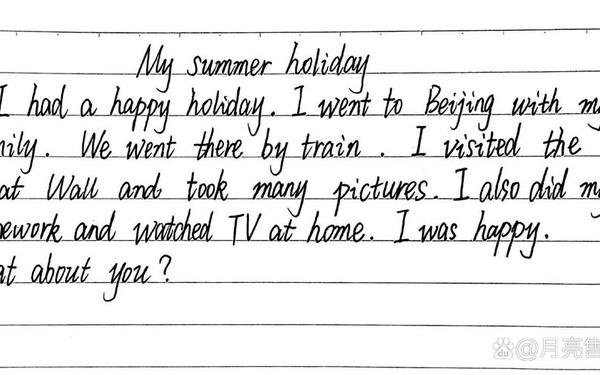 My summer holiday
I had a happy holiday. I went to Beijing with m
mily. We went there by train. I visited the
at Wall and took many pictures. I also did m
ework and watched TV at home. I was happy.
at about you?
du @月亮售